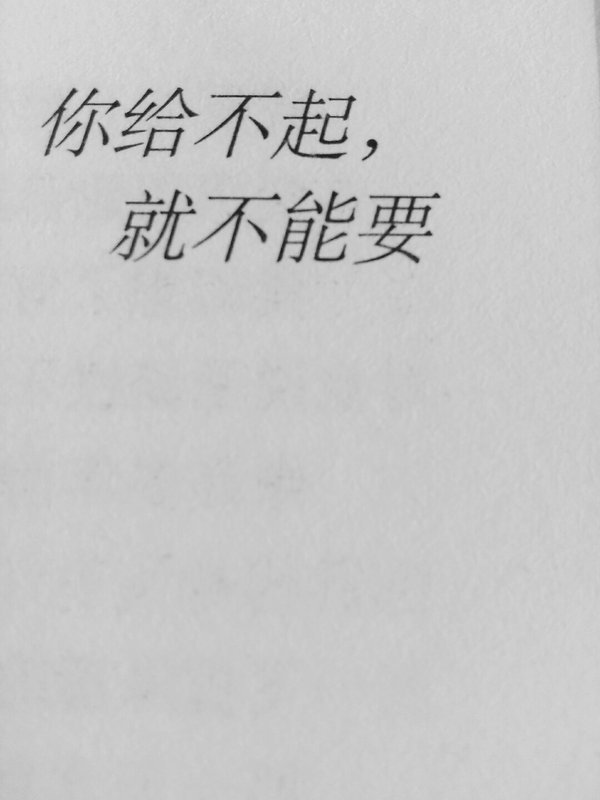 你给不起，
就不能要